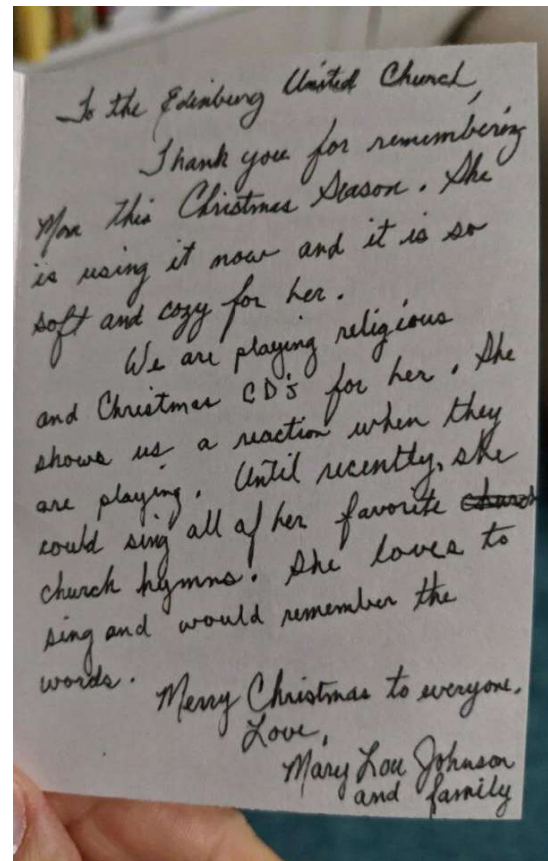 To the Edinburg United Church,
Thank you for remembering
Mom this Christmas Season. She
is using it now and it is so
soft and cozy for her.
We are playing religious
and Christmas CD's for her. She
shows us a reaction when they
are playing. Until recently, she
could sing all of her favorite church
church hymns. She loves to
sing and would remember the
words.
Merry Christmas to everyone.
Love,
Mary Lou Johnson
and family